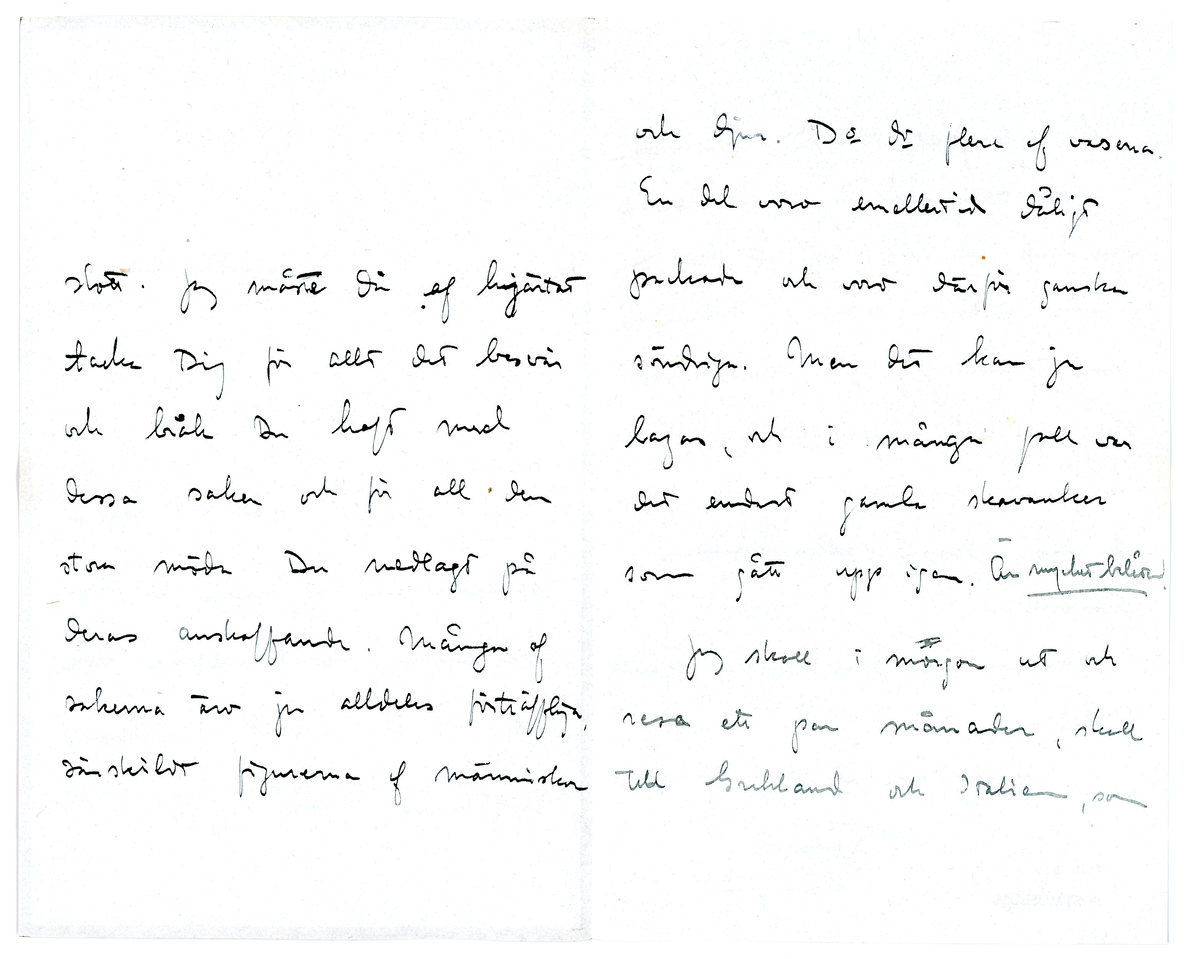 slott. Jag måste då af hjärtat
tacka Dig för allt det besvär
och bråk Du haft med
dessa saker och för all den
stora möda Du nedlagt på
deras anskaffande. Många af
sakerna äro ju alldeles förträffliga,
särskildt figurerna af människor
och djur. Do do flere af vaserna.
En del voro emellertid dåligt
packade och voro därför ganska
söndriga. Men det kan ju
lagas, och i många fall var
det endast gamla skavanker
som gått upp igen. Är mycket belåten.
Jag skall i morgon ut och
resa ett par månader, skall
till Grekland och Italien, som